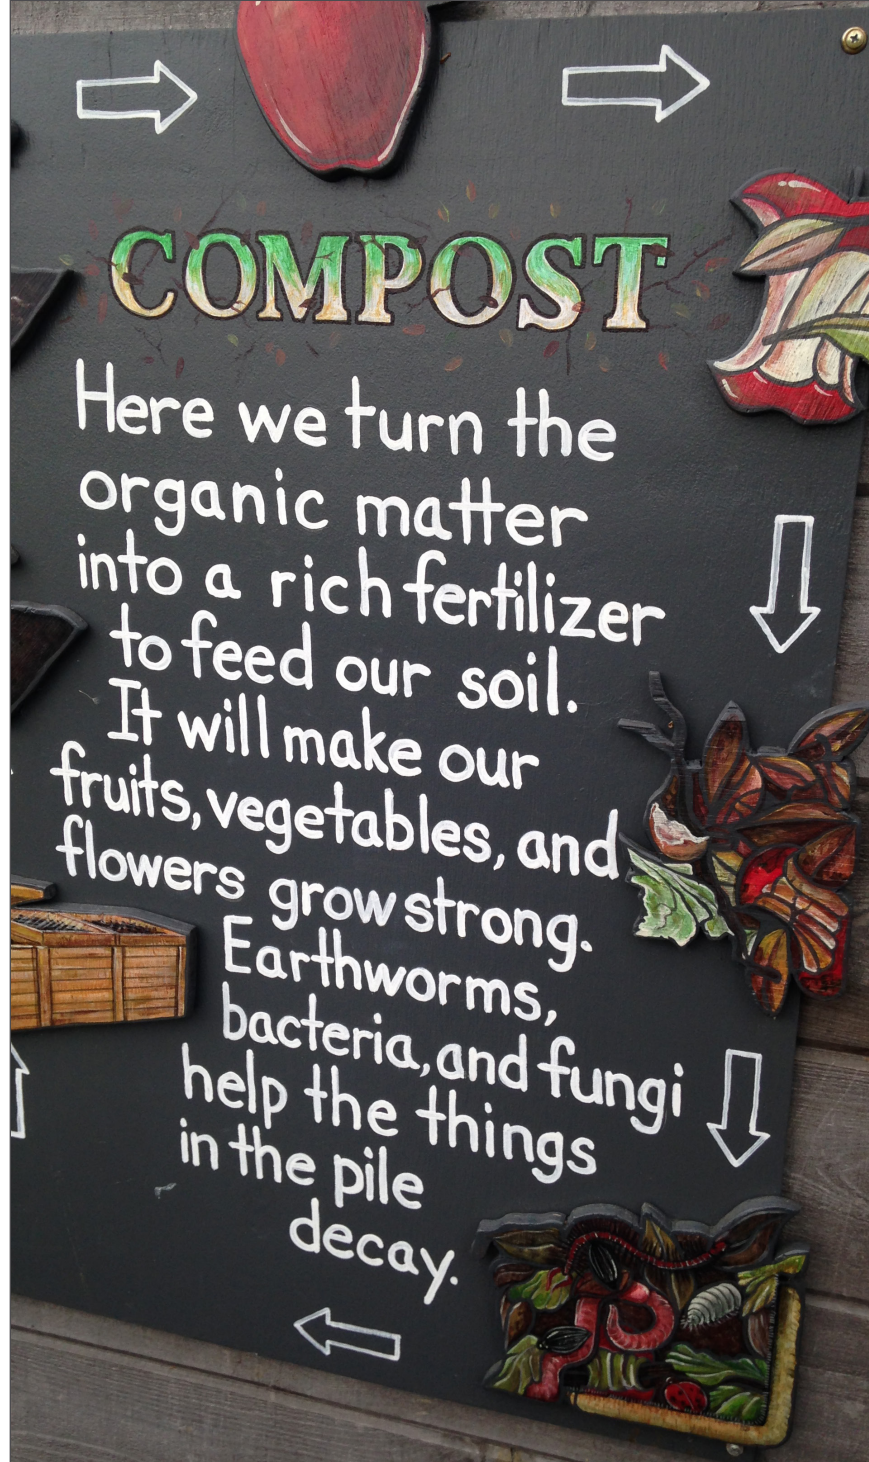 COMPOST
Here we turn the
organic matter
into a rich fertilizer
to feed our soil.
It will make our
fruits, vegetables, and
flowers grow strong.
Earthworms,
bacteria, and fungi
help the things
in the pile
decay.